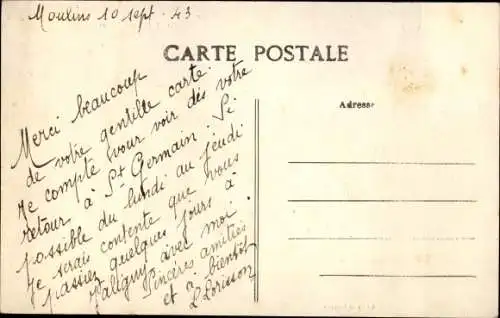 Moulins 10 sept. 43
CARTE POSTALE
Adresse
Merci beaucoup
de votre gentille carte.
Je compte vour voir dès votre
retour à St Germain. Si
possible du lundi au jeudi
Je serais contente que vous
passiez quelques jours à
avec moi
Sincères amitiés
et à bientôt